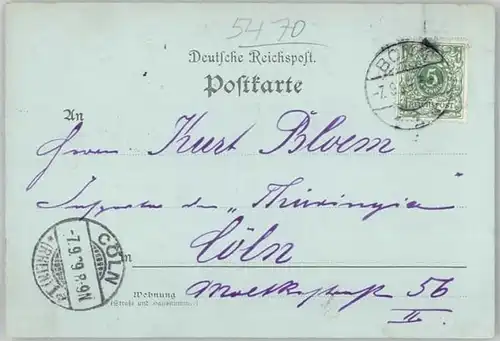 5470
Deutsche Reichspost.
Postkarte
BONN
-7.9.
5
An
Herrn Kurt Bloem
Inspector der „Thuringia"
in Cöln
Wohnung Moltkestrasse 56
(Straße und Hausnummer)
II.
CÖLN
-7.9.9 8-9N
(RHEIN)